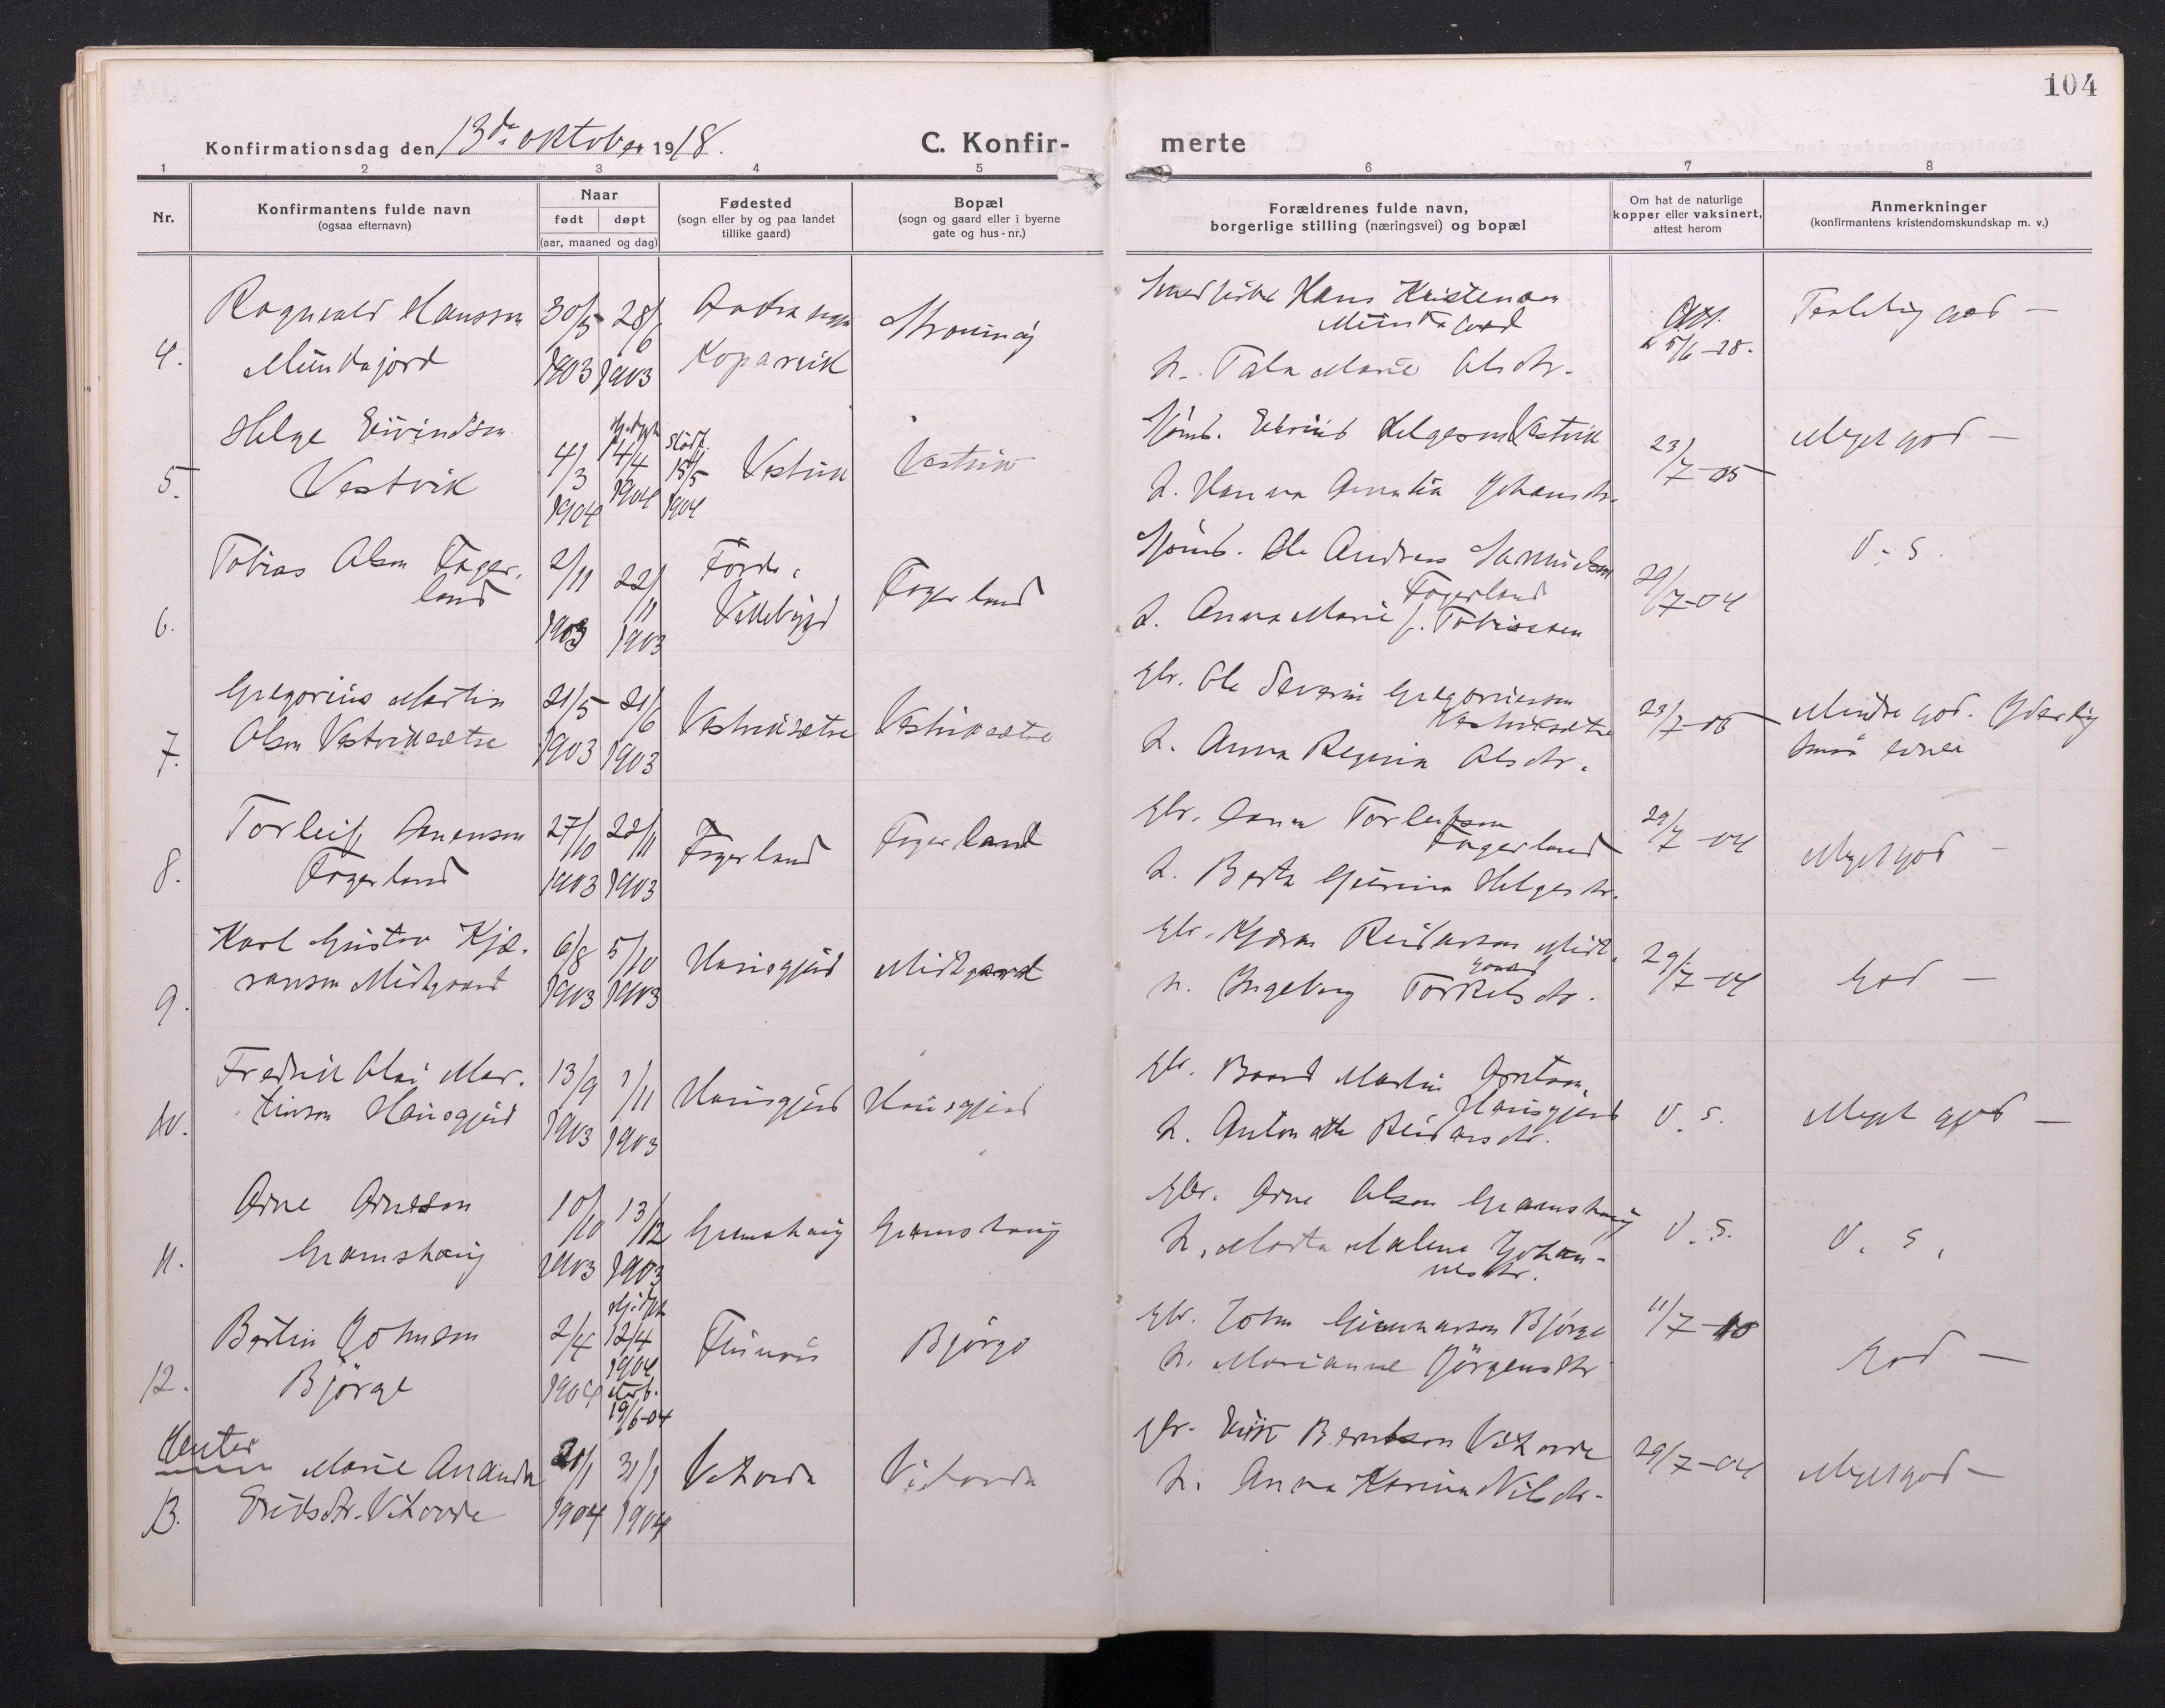 104
Konfirmationsdag den 13de oktober 1918.
C. Konfir-
merte
1 2 3 4 5 6 7 8
Nr.
Konfirmantens fulde navn
(ogsaa efternavn)
Naar
født døpt
(aar, maaned og dag)
Fødested
(sogn eller by og paa landet
tillike gaard)
Bopæl
(sogn og gaard eller i byerne
gate og hus-nr.)
Forældrenes fulde navn,
borgerlige stilling (næringsvei) og bopæl
Om hat de naturlige
kopper eller vaksinert,
attest herom
Anmerkninger
(konfirmantens kristendomskundskap m. v.)
4.
Ragnvald Hansson
Munkajord
30/5 1903
28/6 1903
Kopervik
Hans Kristenson
Munkajord
h. Tala Marie Olsdtr.
5/6-18.
Taalelig god —
5.
Helge Eivindson
Vestvik
4/3 1904
14/4 1904
15/5 1904
Vestvik
Vestvik
Sjömd. Eivind Helgeson Vestvik
h. Hanna Amalia Johansdtr.
23/7-05
Meget god —
6.
Tobias Olson Fager-
land
2/11 1903
22/11 1903
Förde,
Fagerland
Sjömd. Ole Andreas Samuelson
Fagerland
h. Anna Marie f. Tobiassen
29/7-04
V. S.
7.
Gregorius Martin
Olson Vestviksætre
21/5 1903
21/6 1903
Vestviksætre
Vestviksætre
Gbr. Ole Severin Gregoriusson
Vestviksætre
h. Anna Regina Olsdtr.
23/7-05
Mindre god. Yderlig
smaa evner
8.
Torleif Aanenson
Fagerland
27/10 1903
22/11 1903
Fagerland
Fagerland
Gbr. Aanen Torleifson
Fagerland
h. Berta Gurina Helgesdtr.
29/7-04
Meget god —
9.
Karl Gustav Kjæ-
ranson Midtgaard
6/8 1903
5/10 1903
Hausgjerd
Midtgaard
Gbr. Kjæran Reidarson Midt-
gaard
h. Ingeborg Torkelsdtr.
29/7-04
God —
10.
Fredrik Olai Mar-
tinson Hausgjerd
13/9 1903
1/11 1903
Hausgjerd
Hausgjerd
Gbr. Baard Martin
Hausgjerd
h. Antonette Reidarsdtr.
V. S.
Meget god —
11.
Arne Arneson
Gramshaug
10/10 1903
13/12 1903
Gramshaug
Gramshaug
Gbr. Arne Olson Gramshaug
h. Marta Malene Johan-
nesdtr.
V. S.
V. S.
12.
Bertin Johnson
Björge
2/4 1904
Hj.døpt
12/4 1904
19/6-04
Björge
Gbr. John Gunnarson Björge
h. Marianne Jörgensdtr
11/7-10
God —
Jenter
13.
Marie Amanda
Eriksdtr. Vikovde
21/1 1904
31/1 1904
Gbr. Eirik Berntson
h. Anna Karina Nilsdtr.
29/7-04
Meget god —